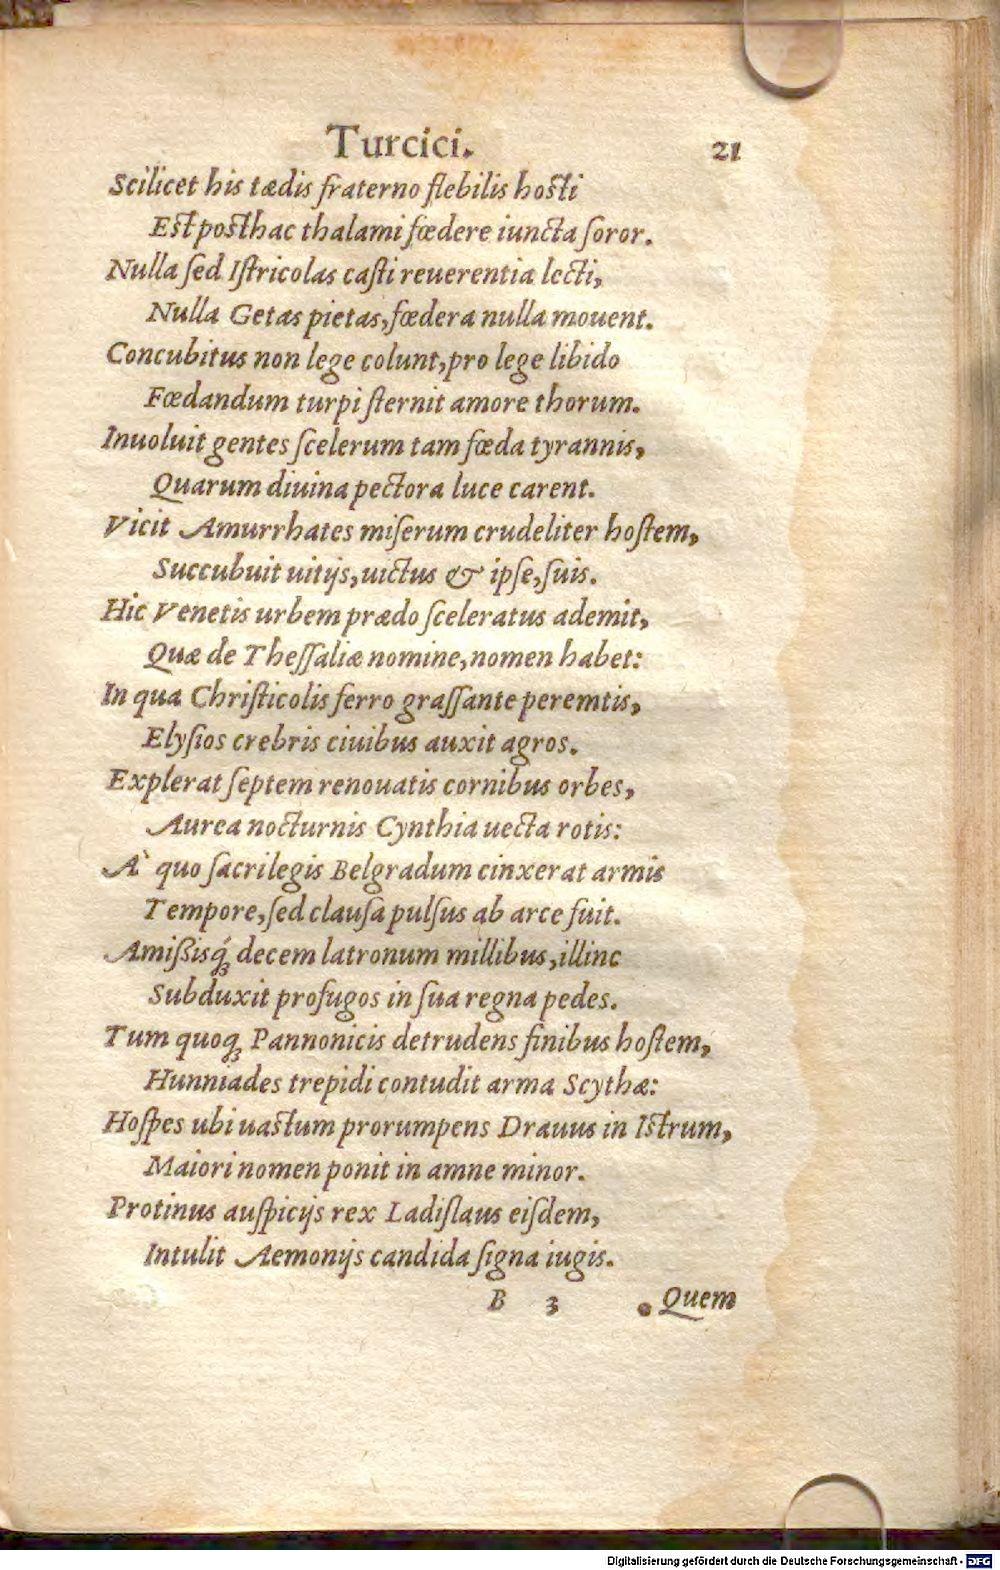 Turcici. 21
Scilicet his tædis fraterno flebilis hosti
Est posthac thalami fœdere iuncta ſoror.
Nulla ſed Iſtricolas caſti reuerentia lecti,
Nulla Getas pietas, fœdera nulla mouent.
Concubitus non lege colunt, pro lege libido
Fœdandum turpi ſternit amore thorum.
Inuoluit gentes ſcelerum tam fœda tyrannis,
Quarum diuina pectora luce carent.
Vicit Amurrhates miſerum crudeliter hoſtem,
Succubuit uitijs, uictus & ipſe, ſuis.
Hic Venetis urbem prædo ſceleratus ademit,
Quæ de Theſſaliæ nomine, nomen habet:
In qua Chriſticolis ferro graſſante peremtis,
Elyſios crebris ciuibus auxit agros.
Explerat ſeptem renouatis cornibus orbes,
Aurea nocturnis Cynthia uecta rotis:
A` quo ſacrilegis Belgradum cinxerat armis
Tempore, ſed clauſa pulſus ab arce fuit.
Amißisq́; decem latronum millibus, illinc
Subduxit profugos in ſua regna pedes.
Tum quoq; Pannonicis detrudens finibus hoſtem,
Hunniades trepidi contudit arma Scythæ:
Hoſpes ubi uastum prorumpens Drauus in Istrum,
Maiori nomen ponit in amne minor.
Protinus auſpicijs rex Ladiſlaus eiſdem,
Intulit Aemonijs candida ſigna iugis.
B 3 Quem
Digitalisierung gefördert durch die Deutsche Forschungsgemeinschaft - DFG